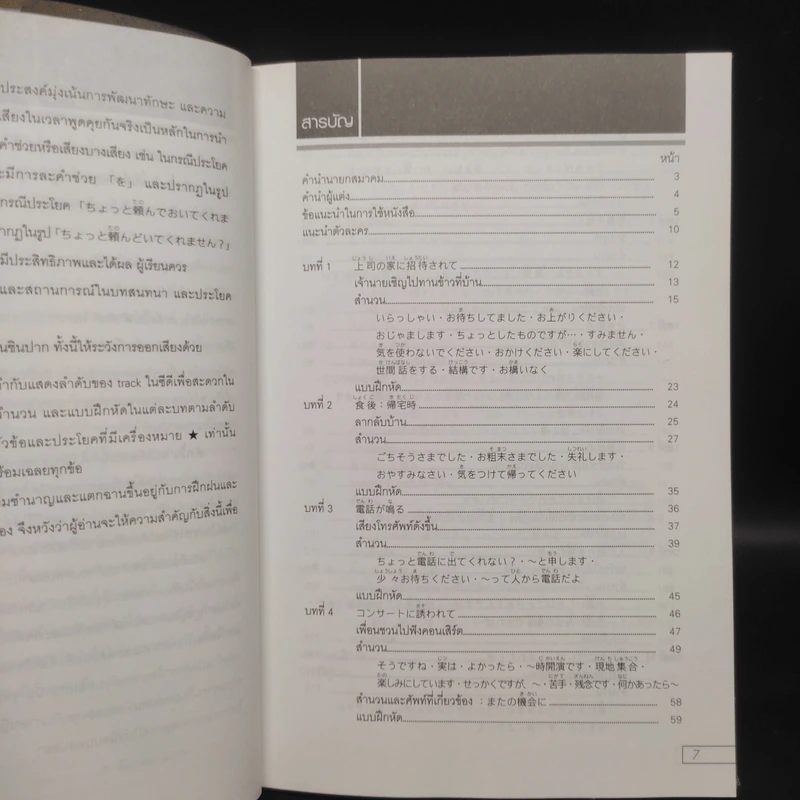 ประสงค์มุ่งเน้นการพัฒนาทักษะ และความ
เสียงในเวลาพูดคุยกันจริงเป็นหลักในการนำ
คำช่วยหรือเสียงบางเสียง เช่น ในกรณีประโยค
มีการละคำช่วย 「を」 และปรากฏในรูป
กรณีประโยค「ちょっと頼んでおいてくれま
ากฏในรูป「ちょっと頼んどいてくれません?」
มีประสิทธิภาพและได้ผล ผู้เรียนควร
และสถานการณ์ในบทสนทนา และประโยค
นชินปาก ทั้งนี้ให้ระวังการออกเสียงด้วย
กำกับแสดงลำดับของ track ในซีดีเพื่อสะดวกใน
สำนวน และแบบฝึกหัดในแต่ละบทตามลำดับ
หัวข้อและประโยคที่มีเครื่องหมาย ★ เท่านั้น
ร้อมเฉลยทุกข้อ
มชำนาญและแตกฉานขึ้นอยู่กับการฝึกฝนและ
อง จึงหวังว่าผู้อ่านจะให้ความสำคัญกับสิ่งนี้เพื่อ
สารบัญ
หน้า
คำนำนายกสมาคม 3
คำนำผู้แต่ง 4
ข้อแนะนำในการใช้หนังสือ 5
แนะนำตัวละคร 10
บทที่ 1 上司の家に招待されて 12
เจ้านายเชิญไปทานข้าวที่บ้าน 13
สำนวน 15
いらっしゃい・お待ちしてました・お上がりください・
おじゃまします・ちょっとしたものですが…・すみません・
気を使わないでください・おかけください・楽にしてください・
世間話をする・結構です・お構いなく
แบบฝึกหัด 23
บทที่ 2 食後:帰宅時 24
ลากลับบ้าน 25
สำนวน 27
ごちそうさまでした・お粗末さまでした・失礼します・
おやすみなさい・気をつけて帰ってください
แบบฝึกหัด 35
บทที่ 3 電話が鳴る 36
เสียงโทรศัพท์ดังขึ้น 37
สำนวน 39
ちょっと電話に出てくれない?・~と申します・
少々お待ちください・~って人から電話だよ
แบบฝึกหัด 45
บทที่ 4 コンサートに誘われて 46
เพื่อนชวนไปฟังคอนเสิร์ต 47
สำนวน 49
そうですね・実は・よかったら・~時開演です・現地集合・
楽しみにしています・せっかくですが、~・苦手・残念です・何かあったら~
สำนวนและศัพท์ที่เกี่ยวข้อง : またの機会に 58
แบบฝึกหัด 59
7